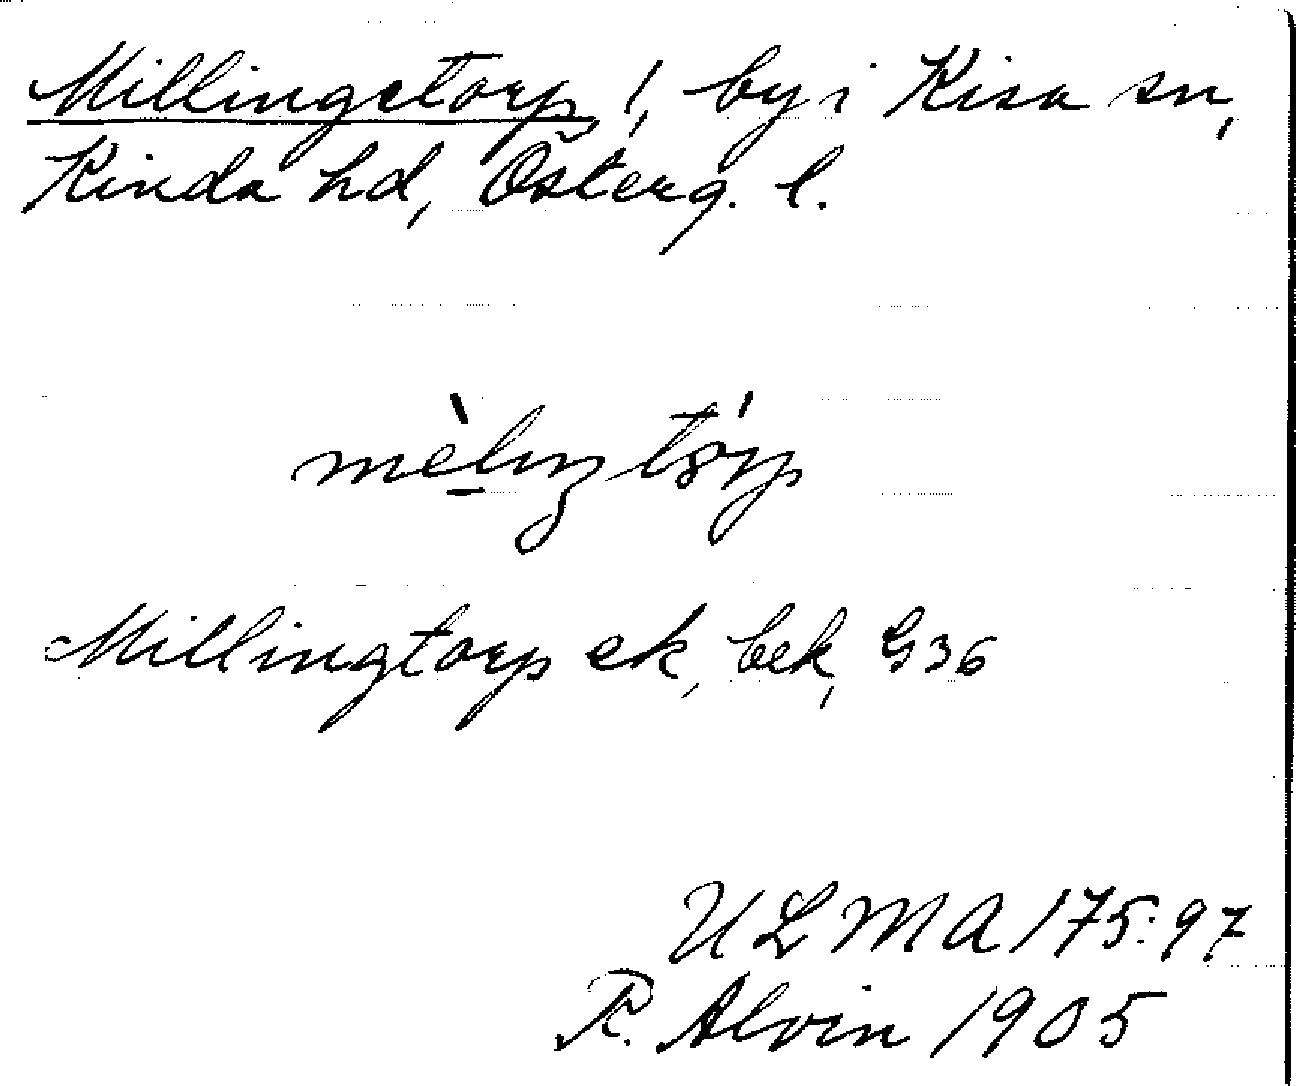 Millingetorp !, by i Kisa sn,
Kinda hd, Österg. l.
Millingtorp ek, bek, G36
ULMA 175:97
R. Alvin 1905